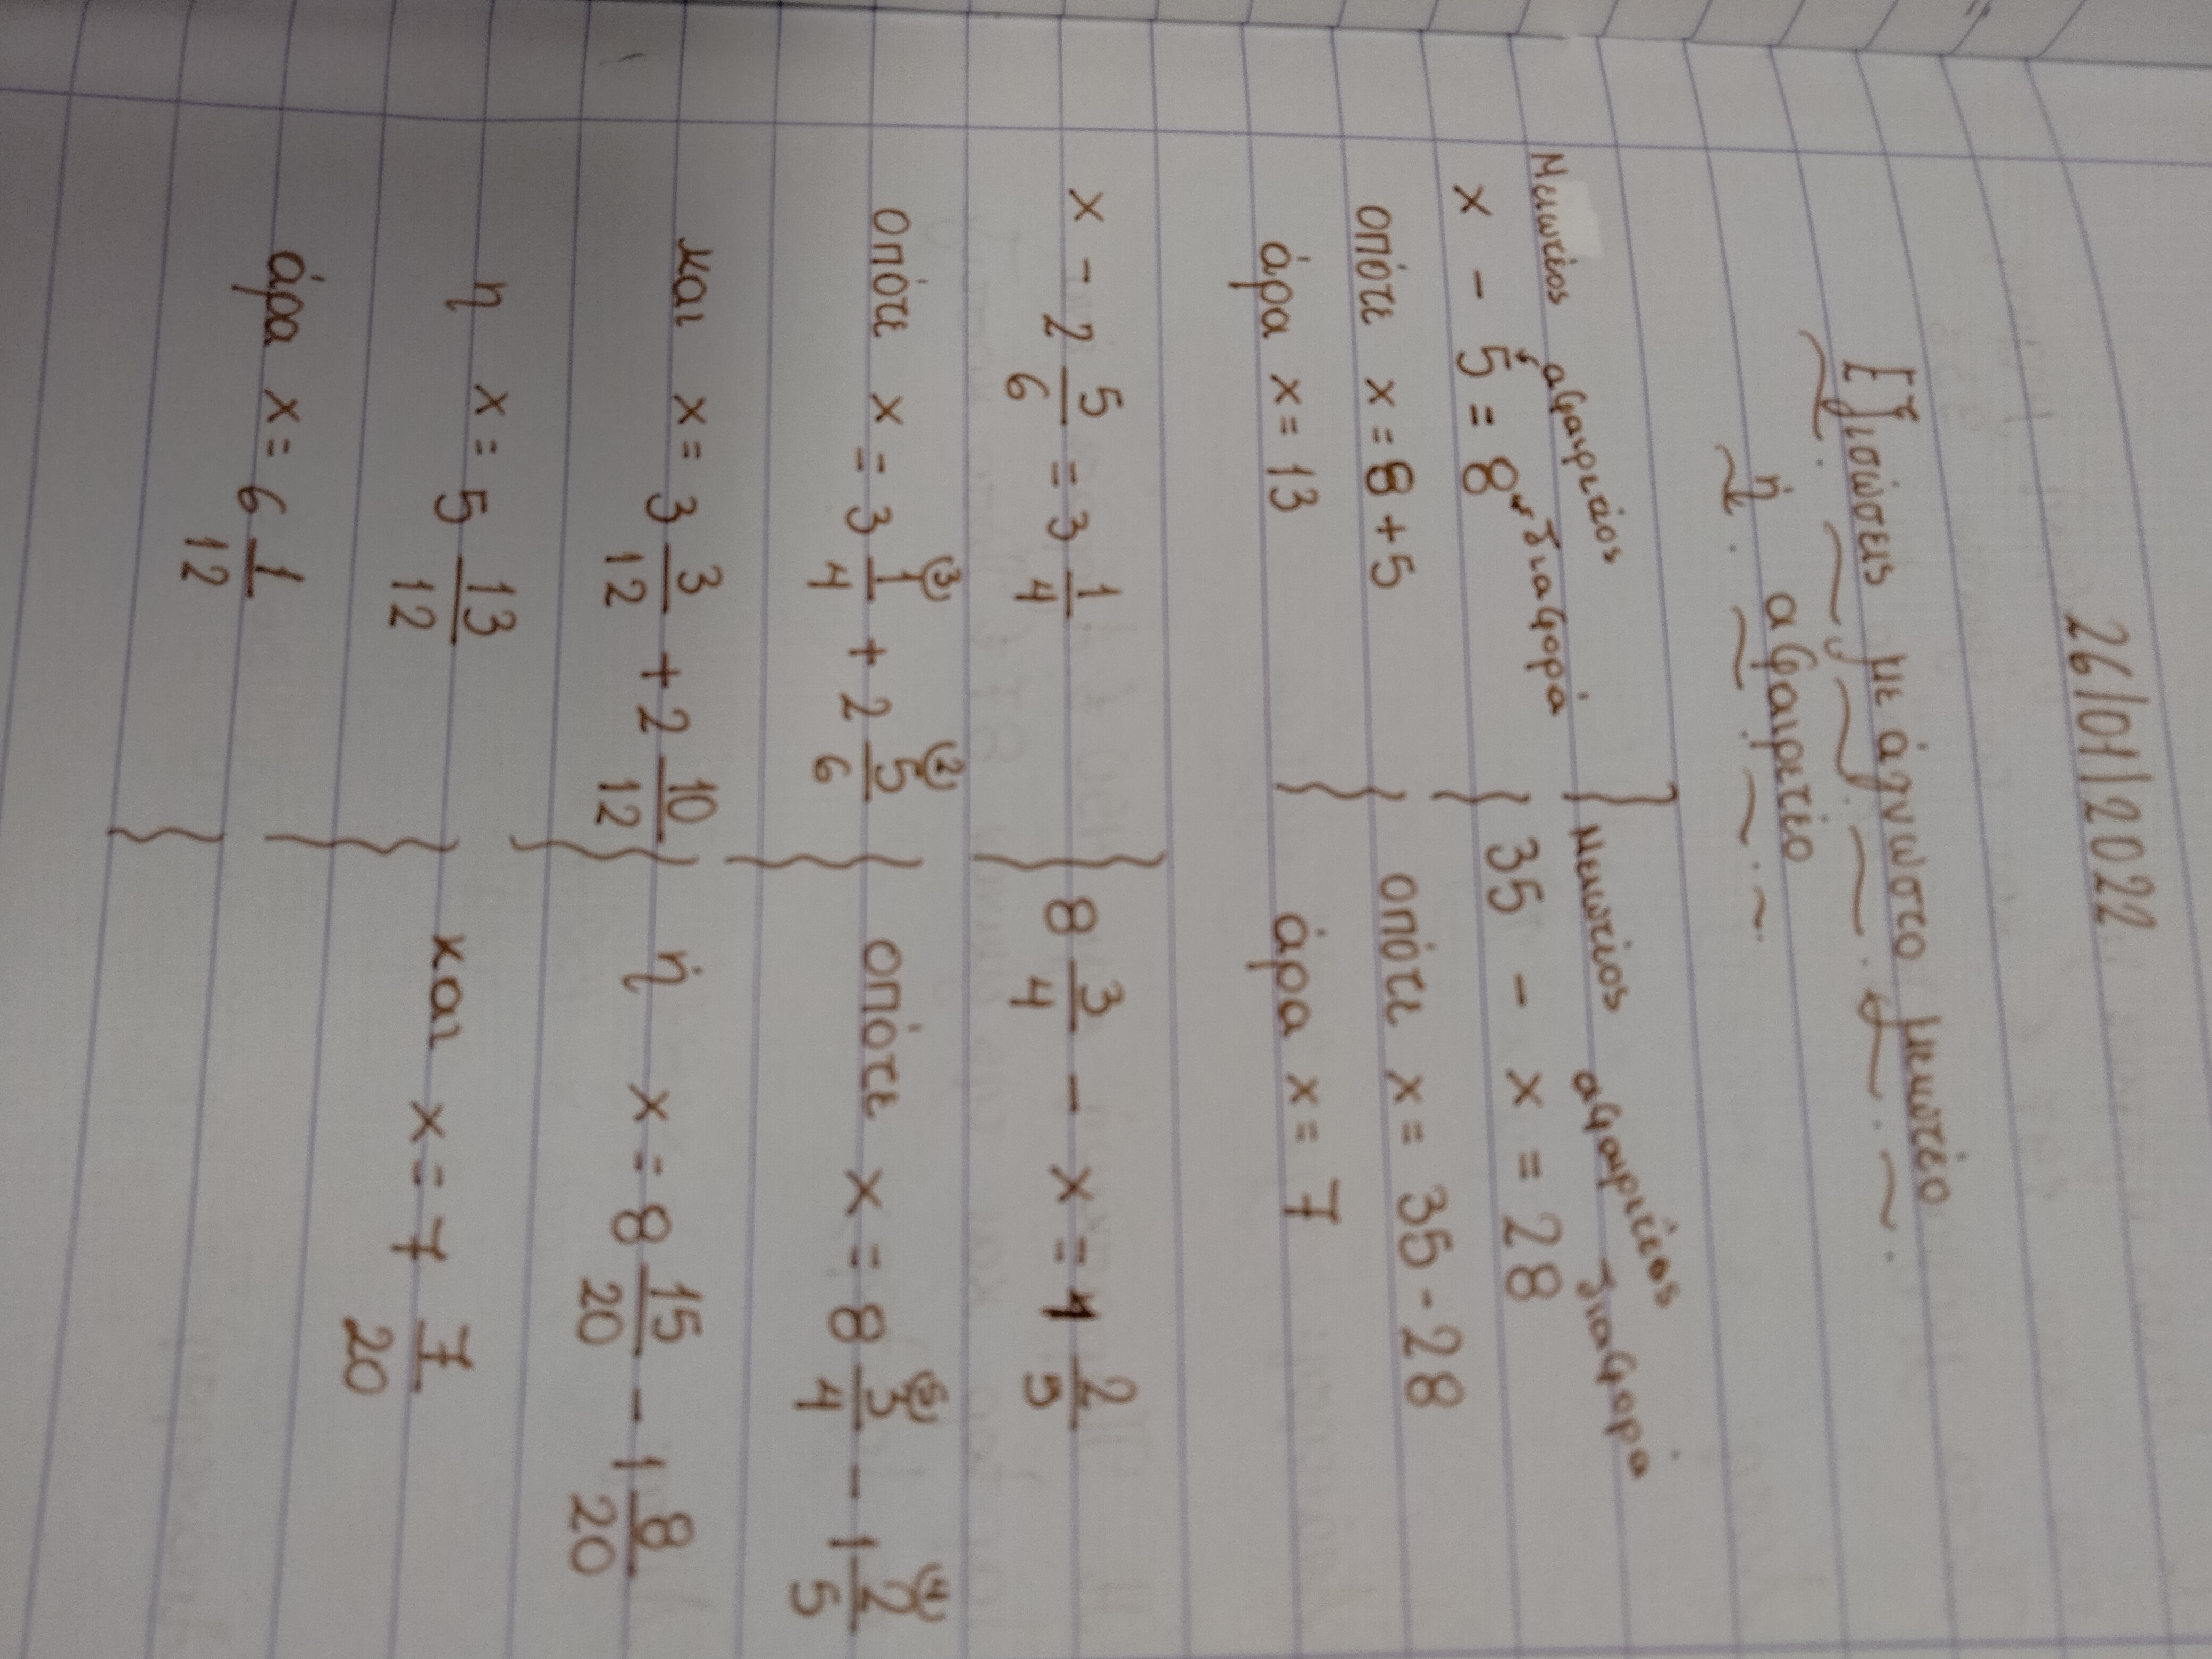 26/01/2022
Εξισώσεις με άγνωστο μειωτέο
ή αφαιρετέο
Μειωτέος αφαιρετέος διαφορά
x - 5 = 8
οπότε x = 8 + 5
άρα x = 13
x - 2 5/6 = 3 1/4
οπότε x = 3 1/4 (3) + 2 5/6 (2)
και x = 3 3/12 + 2 10/12
η x = 5 13/12
άρα x = 6 1/12
Μειωτέος αφαιρετέος διαφορά
35 - x = 28
οπότε x = 35 - 28
άρα x = 7
8 3/4 - x = 1 2/5
οπότε x = 8 3/4 (5) - 1 2/5 (4)
ή x = 8 15/20 - 1 8/20
και x = 7 7/20